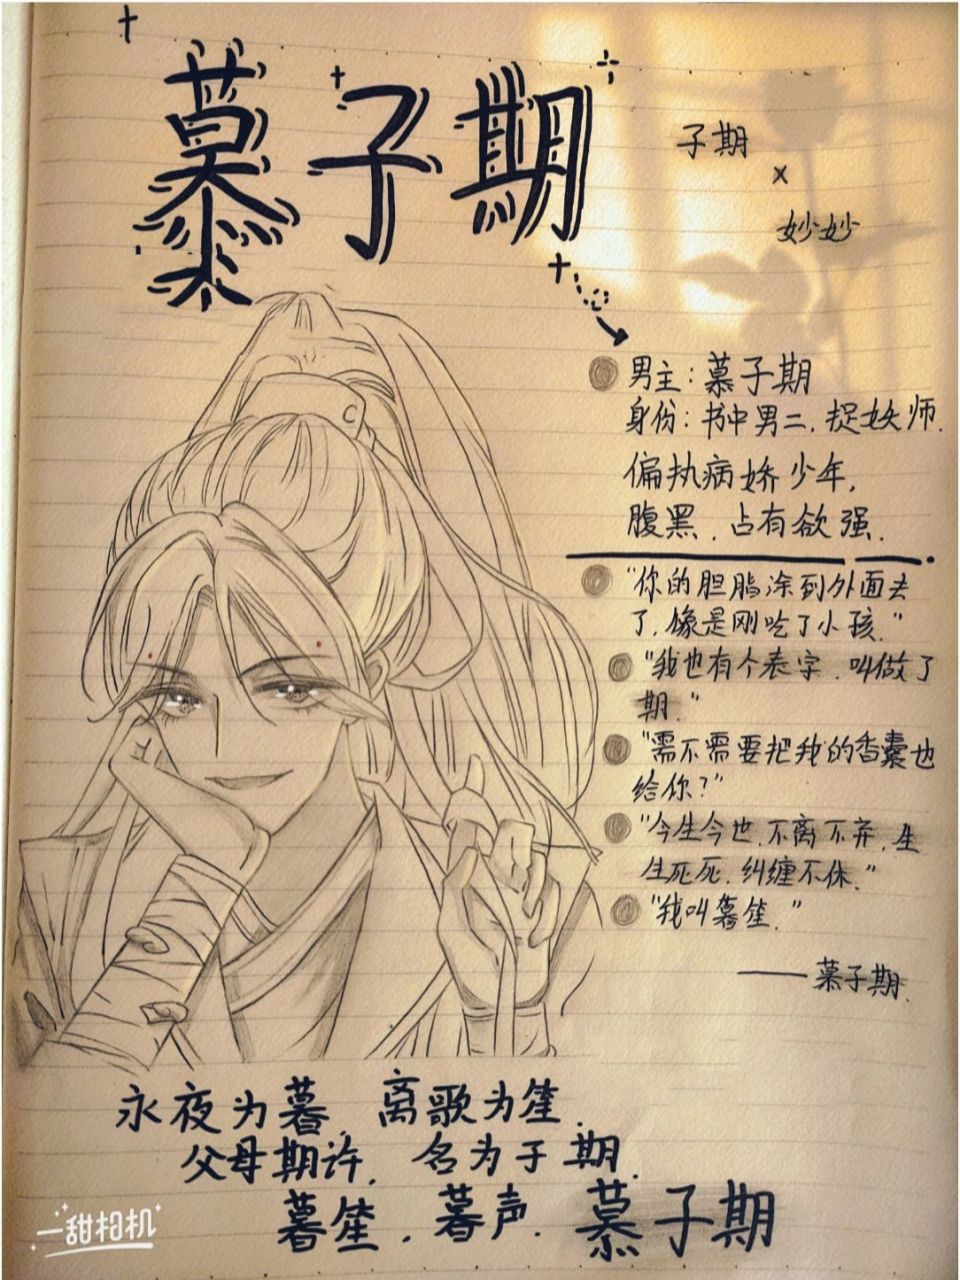 慕子期
子期
×
妙妙
男主:慕子期
身份:书中男二.捉妖师.
偏执病娇少年,
腹黑.占有欲强.
"你的胭脂涂到外面去
了,像是刚吃了小孩."
"我也有个表字.叫做子
期."
"需不需要把我的香囊也
给你?"
"今生今世.不离不弃.生
生死死.纠缠不休."
"我叫暮笙."
——慕子期.
永夜为暮.离歌为笙.
父母期许,名为子期.
暮笙.暮声.慕子期
一甜相机